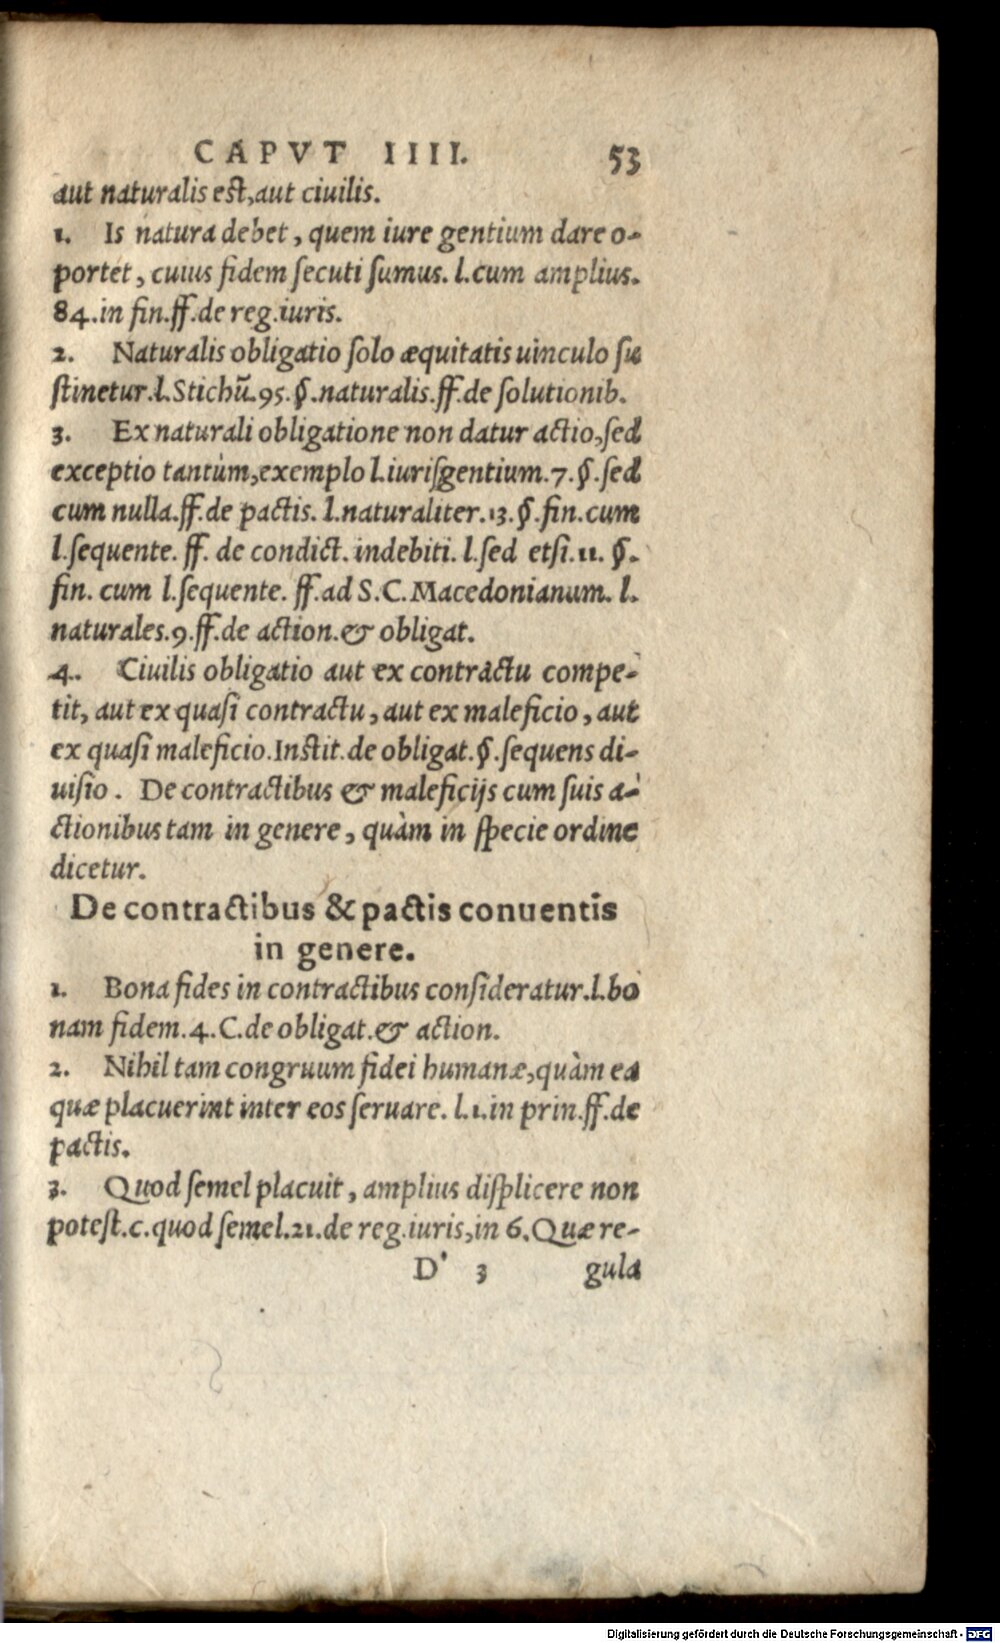 CAPVT IIII. 53
aut naturalis est, aut ciuilis.
1. Is natura debet, quem iure gentium dare o-
portet, cuius fidem secuti sumus. l.cum amplius.
84.in fin.ff.de reg.iuris.
2. Naturalis obligatio solo æquitatis uinculo su
stinetur.l.Stichū.95.§.naturalis.ff.de solutionib.
3. Ex naturali obligatione non datur actio, sed
exceptio tantùm, exemplo l.iurisgentium.7.§.sed
cum nulla.ff.de pactis. l.naturaliter.13.§.fin.cum
l.sequente. ff. de condict. indebiti. l.sed etsi.11. §.
fin. cum l.sequente. ff.ad S.C.Macedonianum. l.
naturales.9.ff.de action.& obligat.
4. Ciuilis obligatio aut ex contractu compe-
tit, aut ex quasi contractu, aut ex maleficio, aut
ex quasi maleficio.Instit.de obligat.§.sequens di-
uisio. De contractibus & maleficijs cum suis a-
ctionibus tam in genere, quàm in specie ordine
dicetur.
De contractibus & pactis conuentis
in genere.
1. Bona fides in contractibus consideratur.l.bo
nam fidem.4.C.de obligat.& action.
2. Nihil tam congruum fidei humanæ, quàm ea
quæ placuerint inter eos seruare. l.1.in prin.ff.de
pactis.
3. Quod semel placuit, amplius displicere non
potest.c.quod semel.21.de reg.iuris, in 6. Quæ re-
D 3 gula
Digitalisierung gefördert durch die Deutsche Forschungsgemeinschaft - DFG